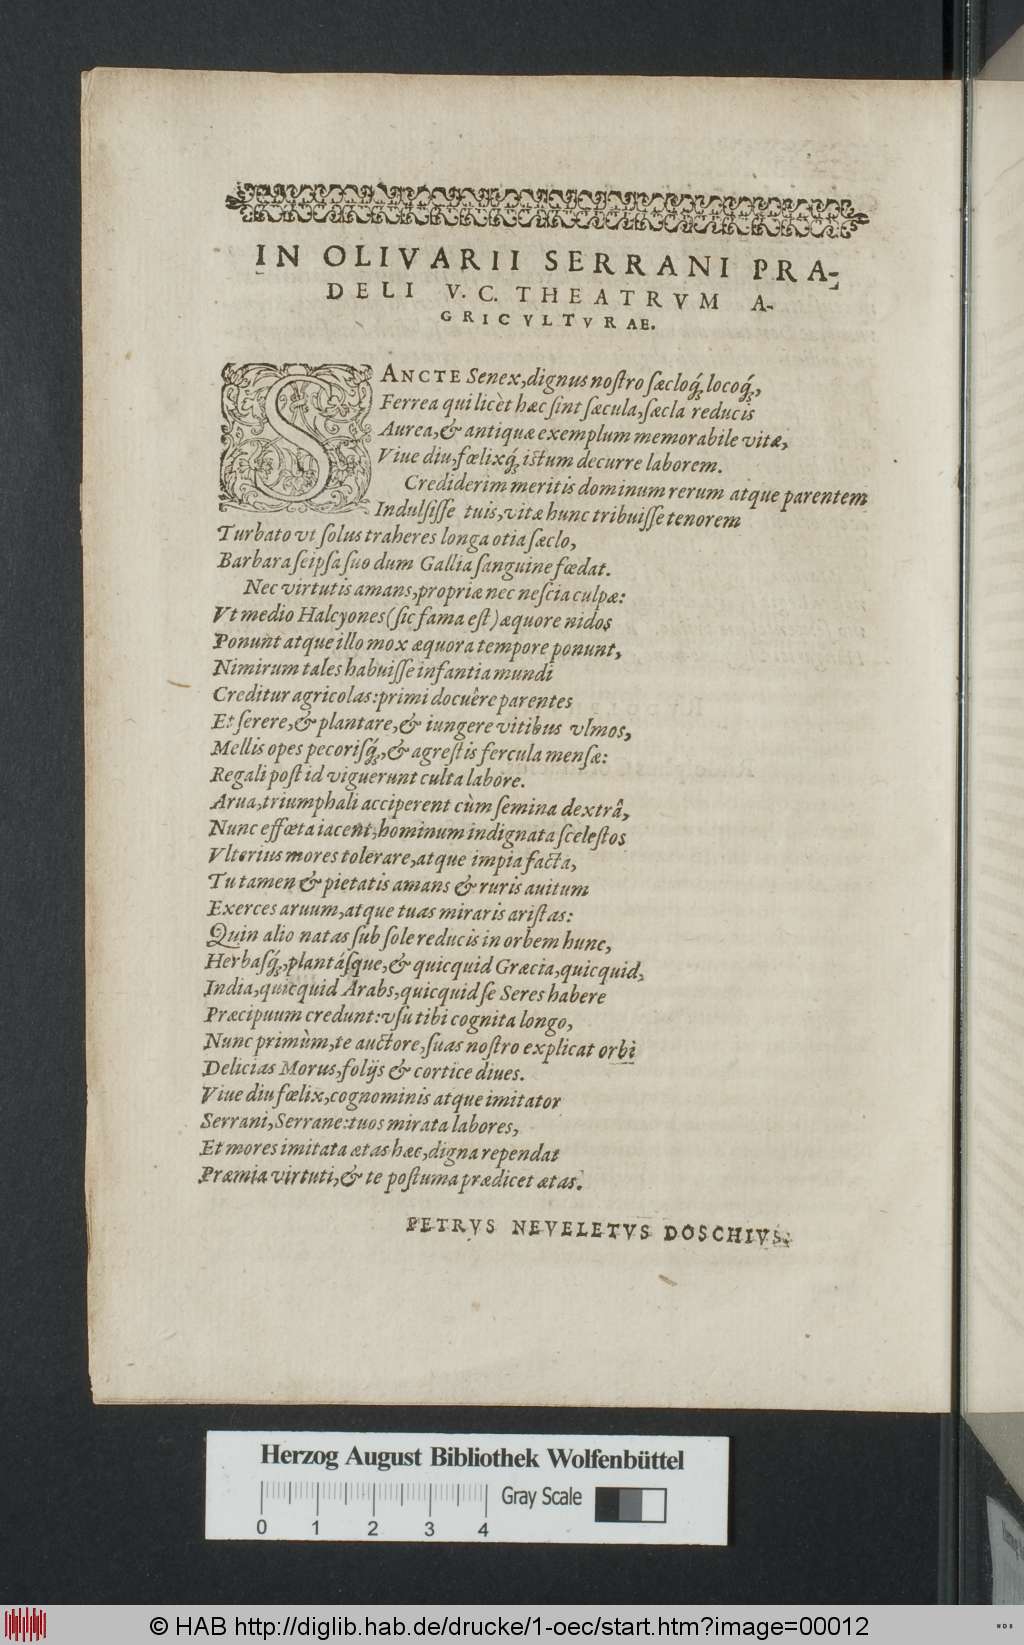 IN OLIVARII SERRANI PRA-
DELI V. C. THEATRVM A-
GRICVLTVRAE.
SANCTE Senex, dignus nostro sæcloq́; locoq́;,
Ferrea qui licèt hæc sint sæcula, sæcla reducis
Aurea, & antiquæ exemplum memorabile vitæ,
Viue diu, fœlixq́; istum decurre laborem.
Crediderim meritis dominum rerum atque parentem
Indulsisse tuis, vitæ hunc tribuisse tenorem
Turbato vt solus traheres longa otia sæclo,
Barbara seipsa suo dum Gallia sanguine fœdat.
Nec virtutis amans, propriæ nec nescia culpæ:
Vt medio Halcyones (sic fama est) æquore nidos
Ponunt atque illo mox æquora tempore ponunt,
Nimirum tales habuisse infantia mundi
Creditur agricolas: primi docuêre parentes
Et serere, & plantare, & iungere vitibus vlmos,
Mellis opes pecorisq́;, & agrestis fercula mensæ:
Regali post id viguerunt culta labore.
Arua, triumphali acciperent cùm semina dextrâ,
Nunc effœta iacent, hominum indignata scelestos
Vlterius mores tolerare, atque impia facta,
Tu tamen & pietatis amans & ruris auitum
Exerces aruum, atque tuas miraris aristas:
Quin alio natas sub sole reducis in orbem hunc,
Herbasq́;, plantásque, & quicquid Græcia, quicquid,
India, quicquid Arabs, quicquid se Seres habere
Præcipuum credunt: vsu tibi cognita longo,
Nunc primùm, te auctore, suas nostro explicat orbi
Delicias Morus, folijs & cortice diues.
Viue diu fœlix, cognominis atque imitator
Serrani, Serrane: tuos mirata labores,
Et mores imitata ætas hæc, digna rependat
Præmia virtuti, & te postuma prædicet ætas.
PETRVS NEVELETVS DOSCHIVS.
Herzog August Bibliothek Wolfenbüttel
Gray Scale
0 1 2 3 4
© HAB http://diglib.hab.de/drucke/1-oec/start.htm?image=00012